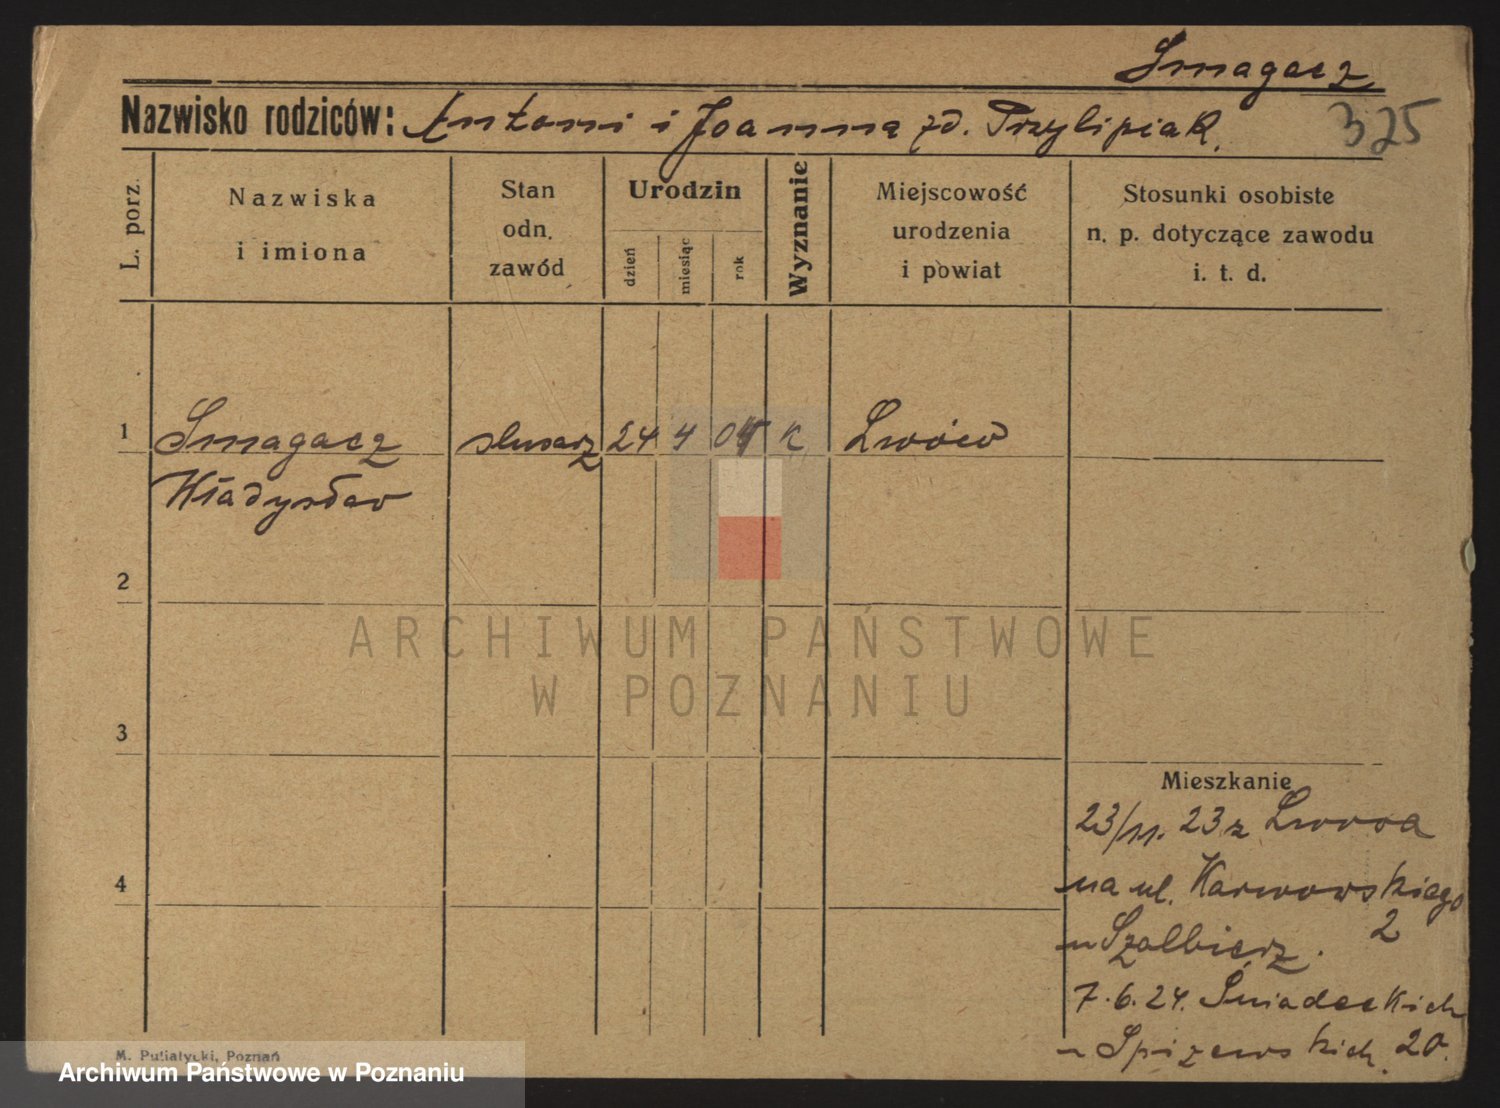 Smagacz
Nazwisko rodziców: Antoni i Joanna zd. Przylipiak.
375
L. porz.
Nazwiska
i imiona
Stan
odn.
zawód
Urodzin
dzień
miesiąc
rok
Wyznanie
Miejscowość
urodzenia
i powiat
Stosunki osobiste
n. p. dotyczące zawodu
i. t. d.
1 Smagacz ślusarz 24 4 04 K Lwów
Władysław
2
3
4
Mieszkanie
23/11. 23 z Lwowa
na ul. Karwowskiego
2
u Szalbierz.
7.6.24. Śniadeckich
u Spiżewskich. 20.
M. Putiatycki, Poznań
ARCHIWUM PAŃSTWOWE
W POZNANIU
Archiwum Państwowe w Poznaniu